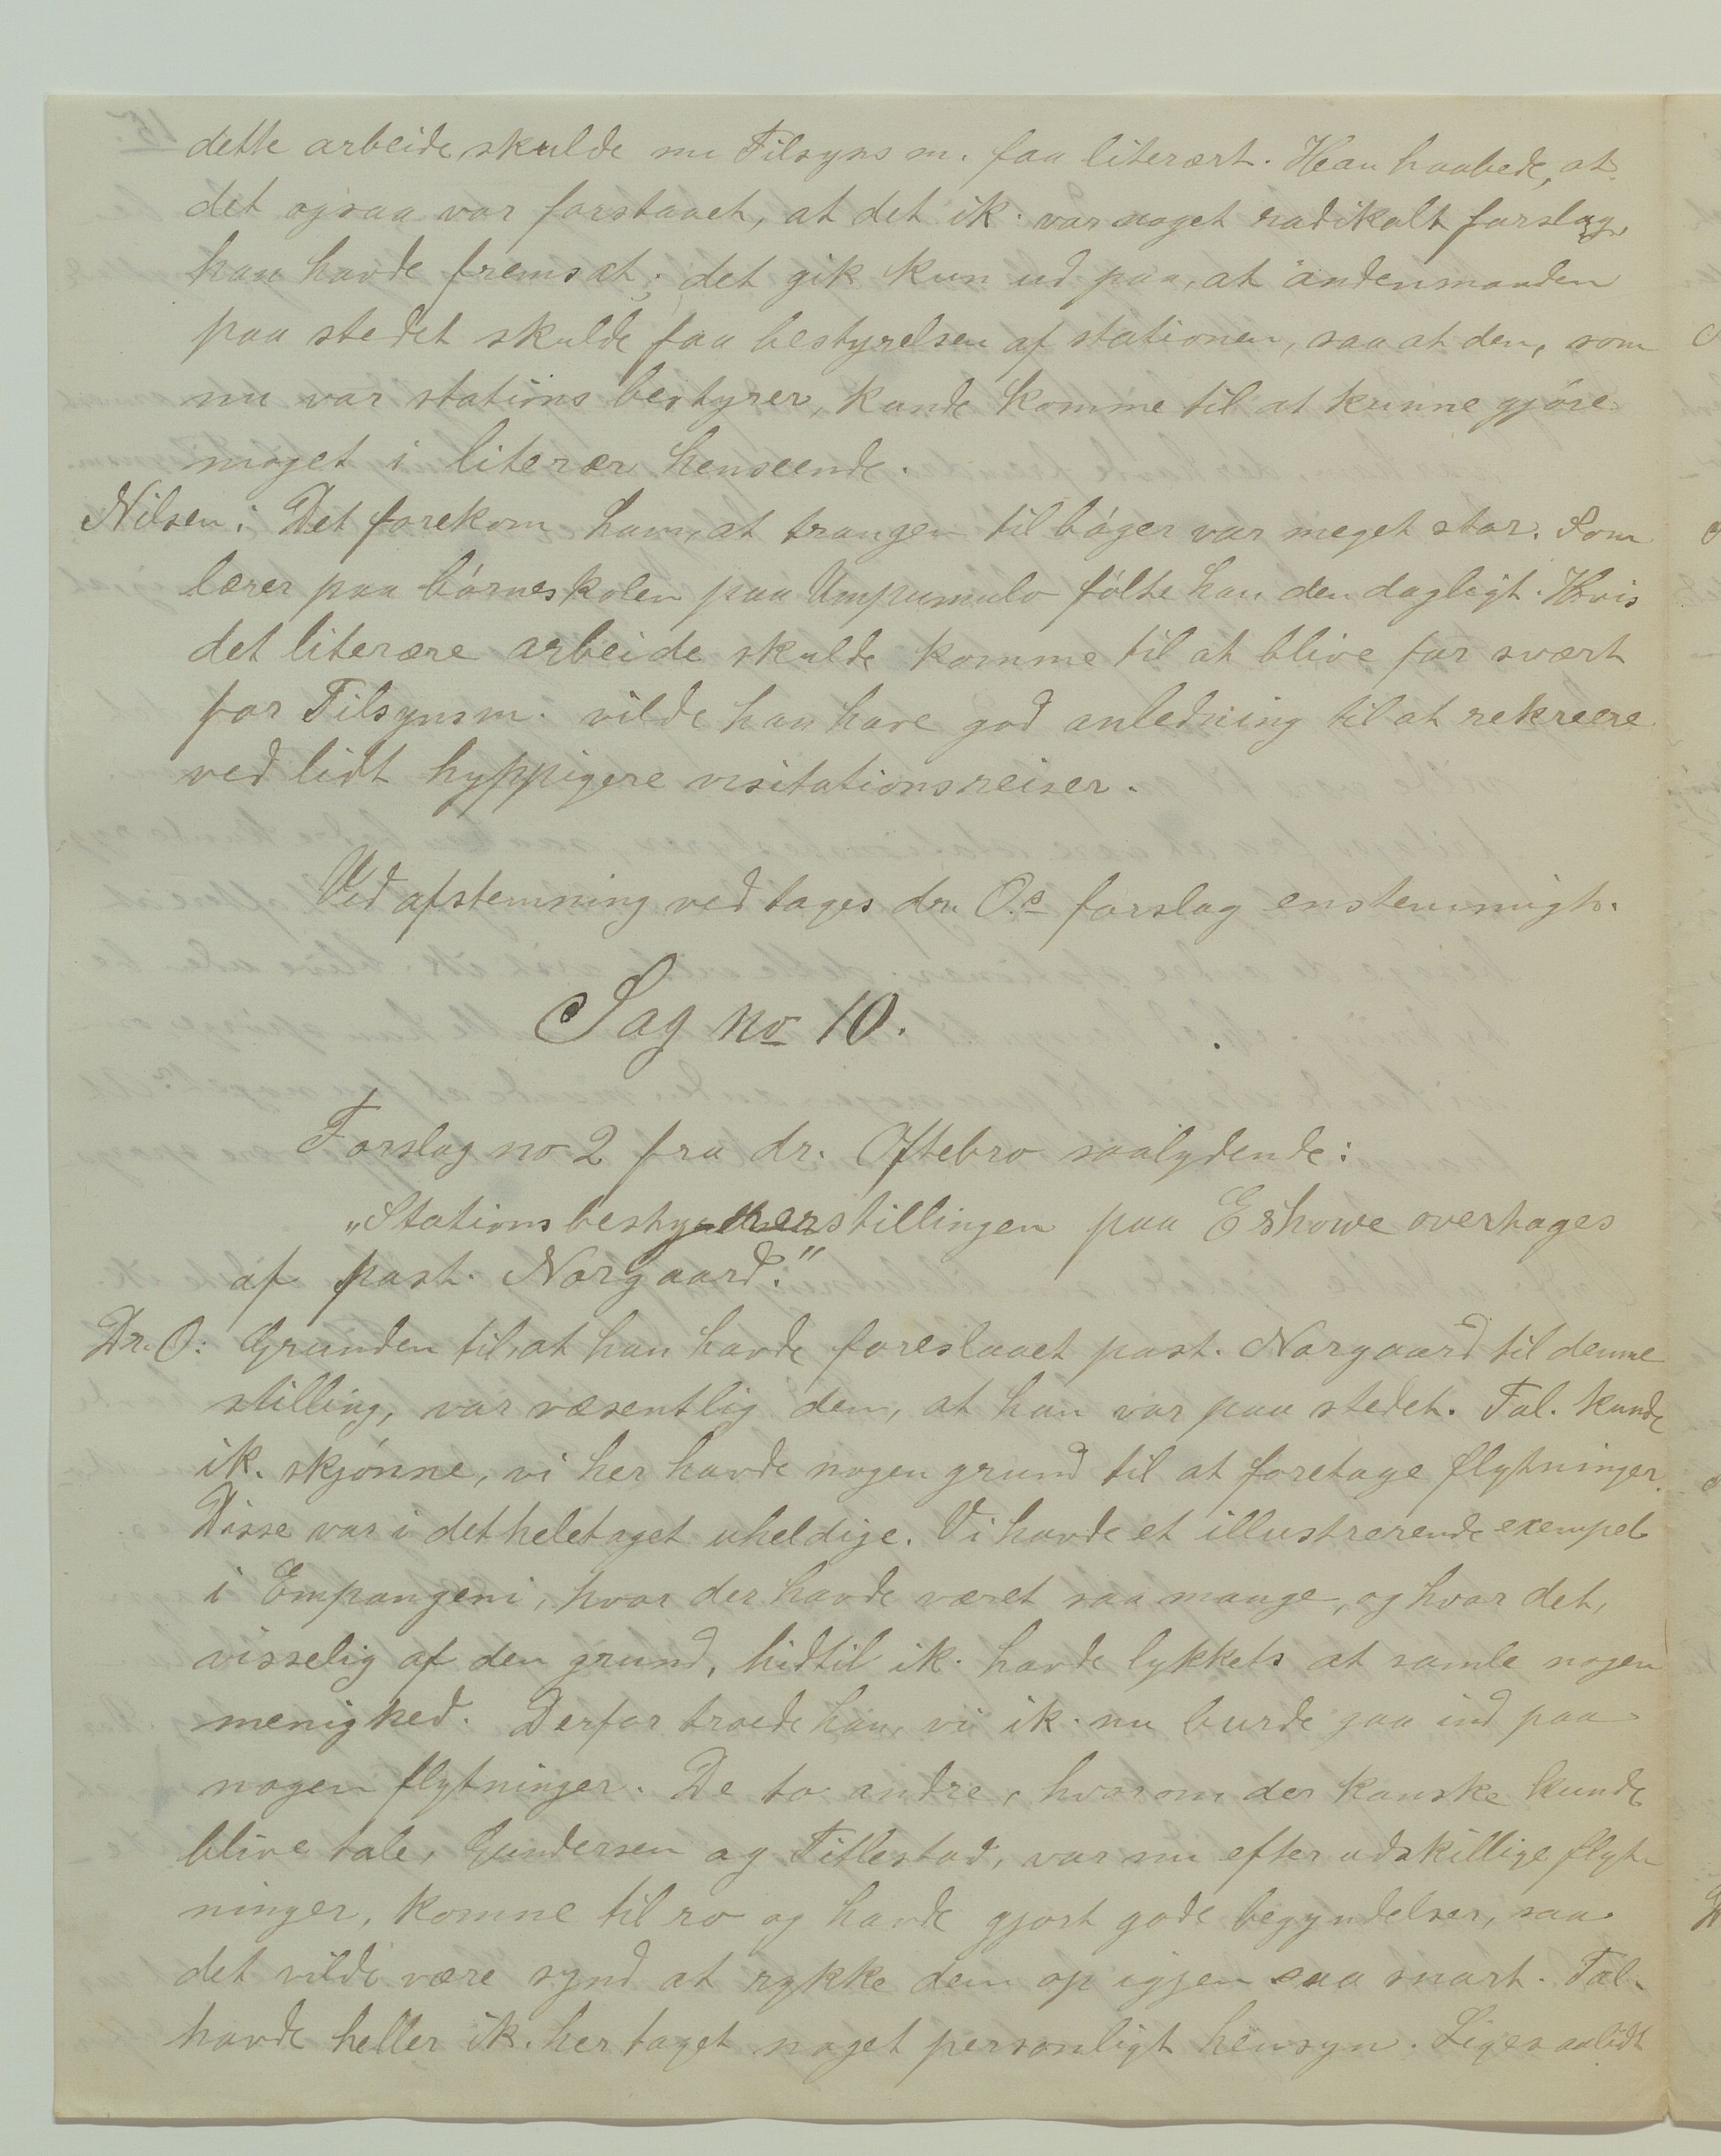 dette arbeide skulde nu Tilsynsm. faa literært. Han haabede, at
det ogsaa var forstaaet, at det ik. var noget radikalt forslag,
han havde fremsat; det gik kun ud paa, at andenmanden
paa stedet skulde faa bestyrelsen af stationen, saa at den, som
nu var stations bestyrer, kunde komme til at kunne gjóre
noget i literær henseende.
Nilsen: Det forekom ham, at trangen til bóger var meget stor. Som
lærer paa bórneskolen paa Umpumulo fólte han den dagligt. Hvis
det literære arbeide skulde komme til at blive for svært
for Tilsynsm. vilde han have god anledning til at rekreere
ved lidt hyppigere visitationsreiser.
Ved afstemning vedtages dr. O.s forslag enstemmigt.
Sag no 10.
Forslag no 2 fra dr. Oftebro saalydende:
„Stationsbestyrerstillingen paa Eshowe overtages
af past. Norgaard."
Dr. O: Grunden til, at han havde foreslaaet past. Norgaard til denne
stilling, var væsentlig den, at han var paa stedet. Tal. kunde
ik. skjónne, vi her havde nogen grund til at foretage flytninger.
Disse var i detheletaget uheldige. Vi havde et illustrerende exempel
i Empangeni, hvor der havde været saa mange, og hvor det,
visselig af den grund, hidtil ik. havde lykkets at samle nogen
menighed. Derfor troede han, vi ik. nu burde gaa ind paa
nogen flytninger. De to andre, hvorom der kanske kunde
blive tale, Gundersen og Titlestad, var nu efter adskillige flyt-
ninger, komne til ro og havde gjort gode begyndelser, saa
det vilde være synd at rykke dem op igjen saa snart. Tal.
havde heller ik. her taget noget personligt hensyn. Ligesaalidt